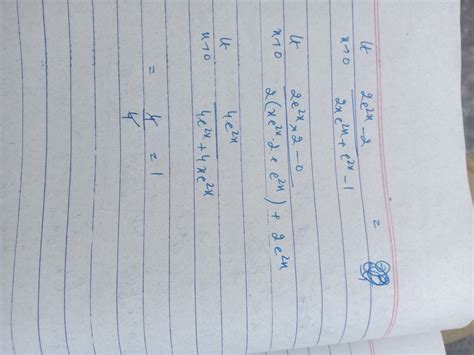 lt x→0 2e^2x - 2 / 2xe^2x + e^2x - 1 =
lt x→0 2e^2x × 2 - 0 / 2(xe^2x·2 + e^2x) + 2e^2x
lt x→0 4e^2x / 4e^2x + 4xe^2x
= 4/4 = 1